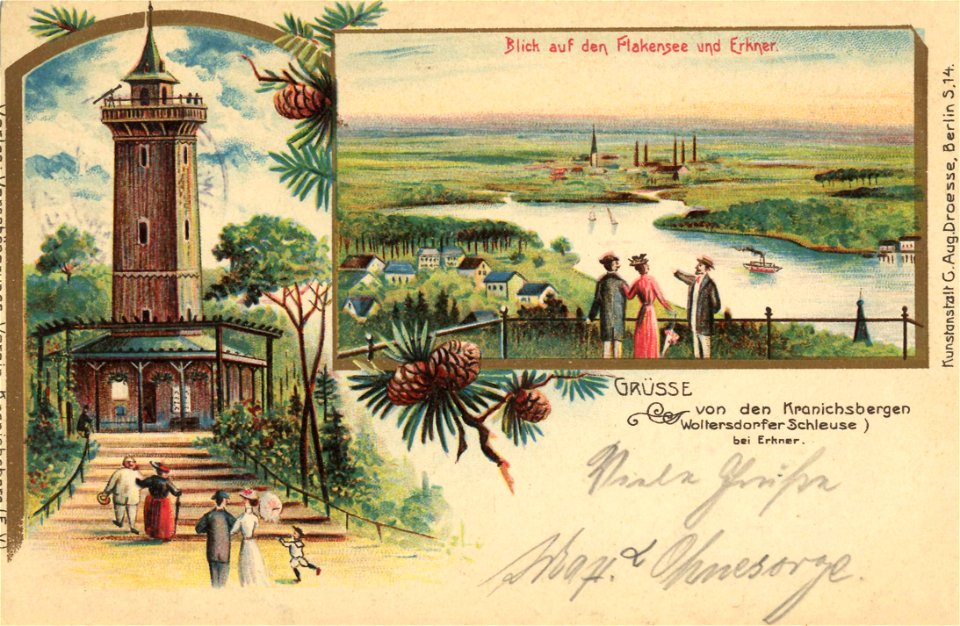 Blick auf den Flakensee und Erkner.
GRÜSSE
von den Kranichsbergen
Woltersdorfer Schleuse)
bei Erkner.
Viele Grüße
Ohnesorge.
Kunstanstalt C. Aug. Droesse, Berlin S, 14.